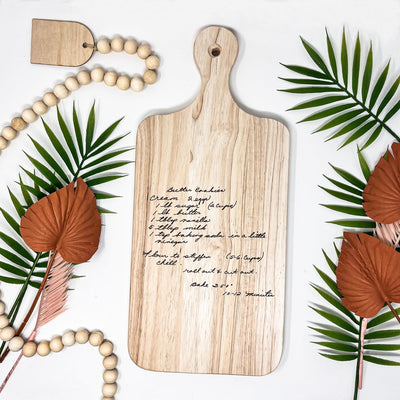 Butter Cookies
Cream 2 eggs
1 lb sugar (2 cups)
1 lb butter
1 tbsp vanilla
5 tbsp milk
1 tsp baking soda in a little
vinegar
Flour to stiffen (5-6 cups)
chill
roll out & cut out.
Bake 350°
10-12 minutes